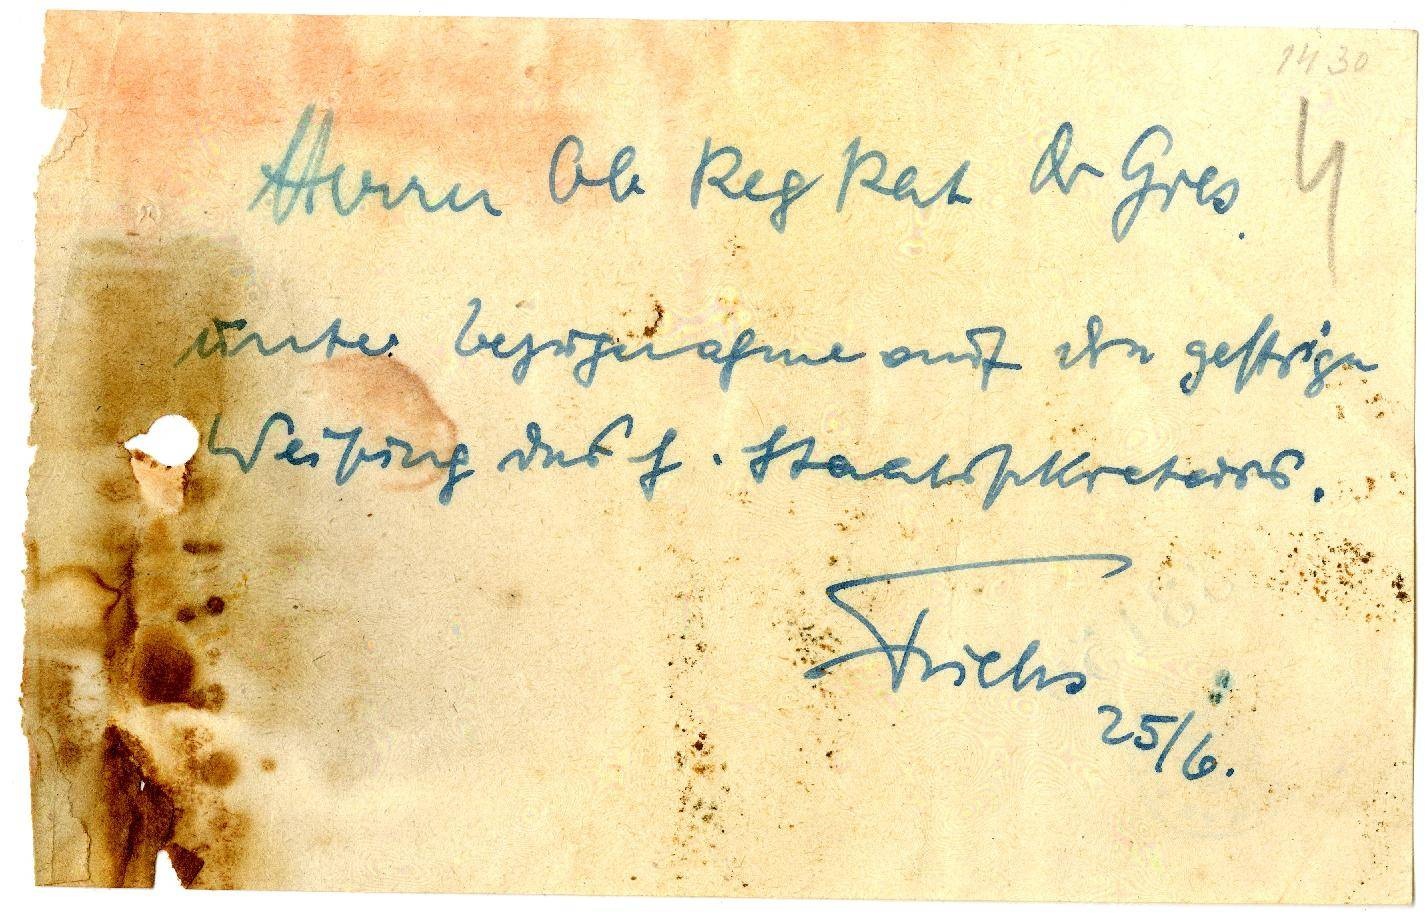 1430
4
Herrn Ob Reg Rat Dr Gies.
unter Bezugnahme auf die gestrige
Weisung des H. Staatssekretärs.
25/6.